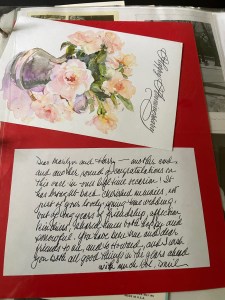 Happy Anniversary
Dear Marilyn and Harry — another
and another round of congratulations on
this once in our life time occasion! It
has brought back cherished memories, not
just of your lovely young wedding,
but of long years of friendship, affection
kindness, shared times both happy and
sorrowful. You have been true and dear
friends to me, and to Howard, and I wish
you both all good things in the years ahead
with much love,